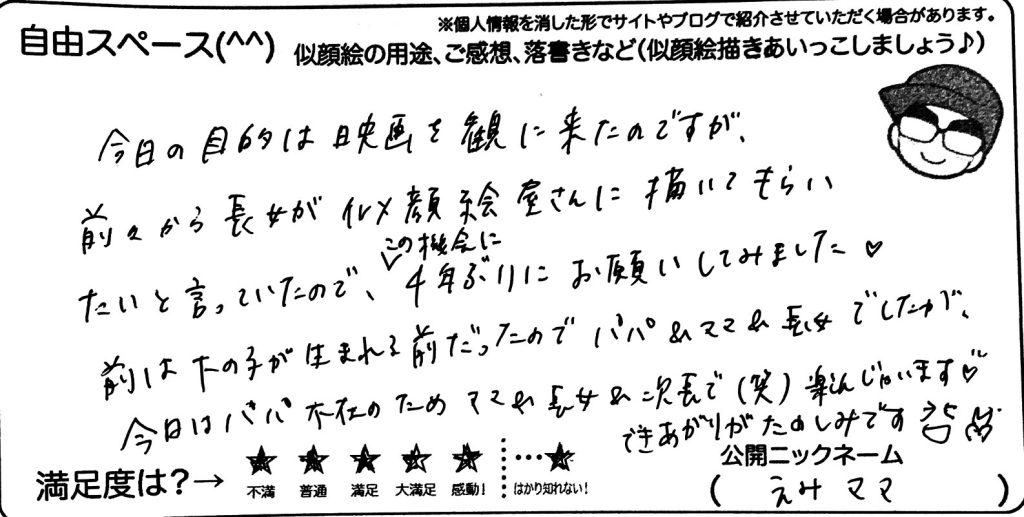 ※個人情報を消した形でサイトやブログで紹介させていただく場合があります。
自由スペース(^^) 似顔絵の用途、ご感想、落書きなど(似顔絵描きあいっこしましょう♪)
今日の目的は映画を観に来たのですが、
前々から長女が似顔絵屋さんに描いてもらい
この機会に
たいと言っていたので、4年ぶりにお願いしてみました♡
前は下の子が生まれる前だったのでパパ&ママ&長女でしたが、
今日はパパ不在のためママ&長女&次長で(笑)楽しんじゃいます♡
できあがりがたのしみです
満足度は?→ 不満 普通 満足 大満足 感動! … はかり知れない!
公開ニックネーム
(えみママ)